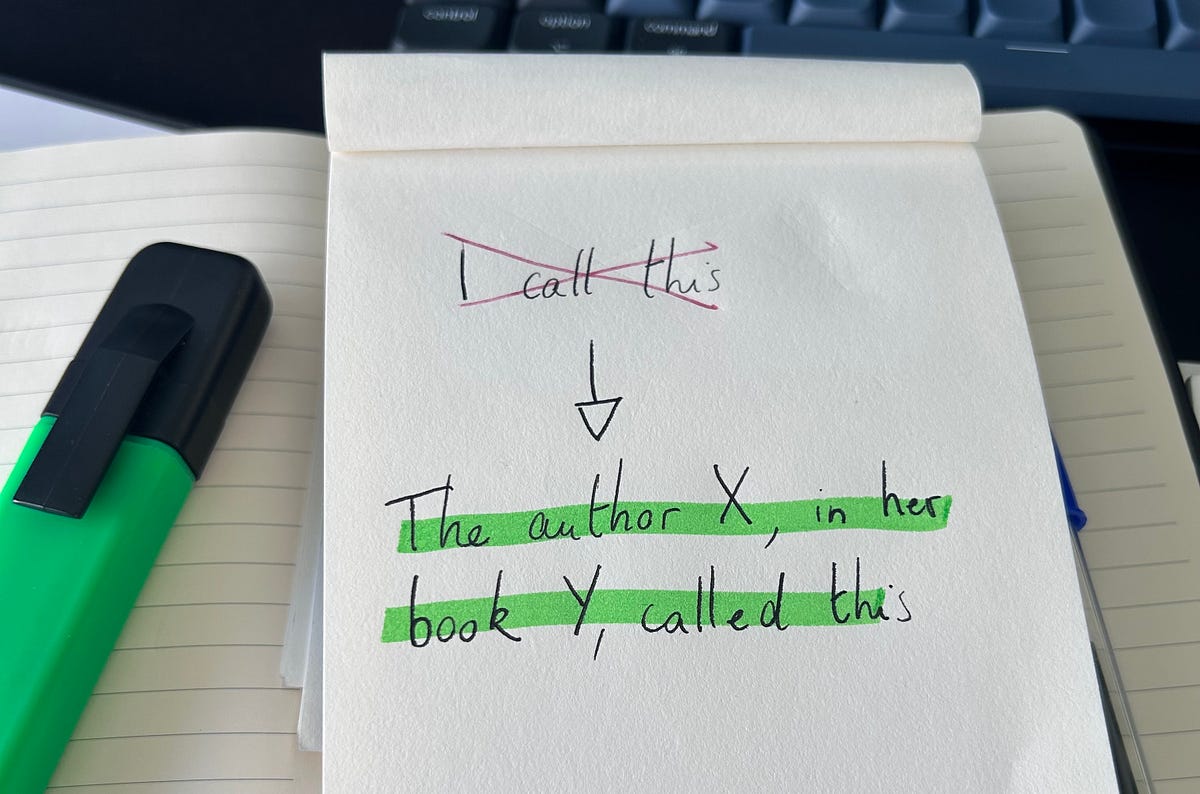 control option command
I call this
The author X, in her
book Y, called this